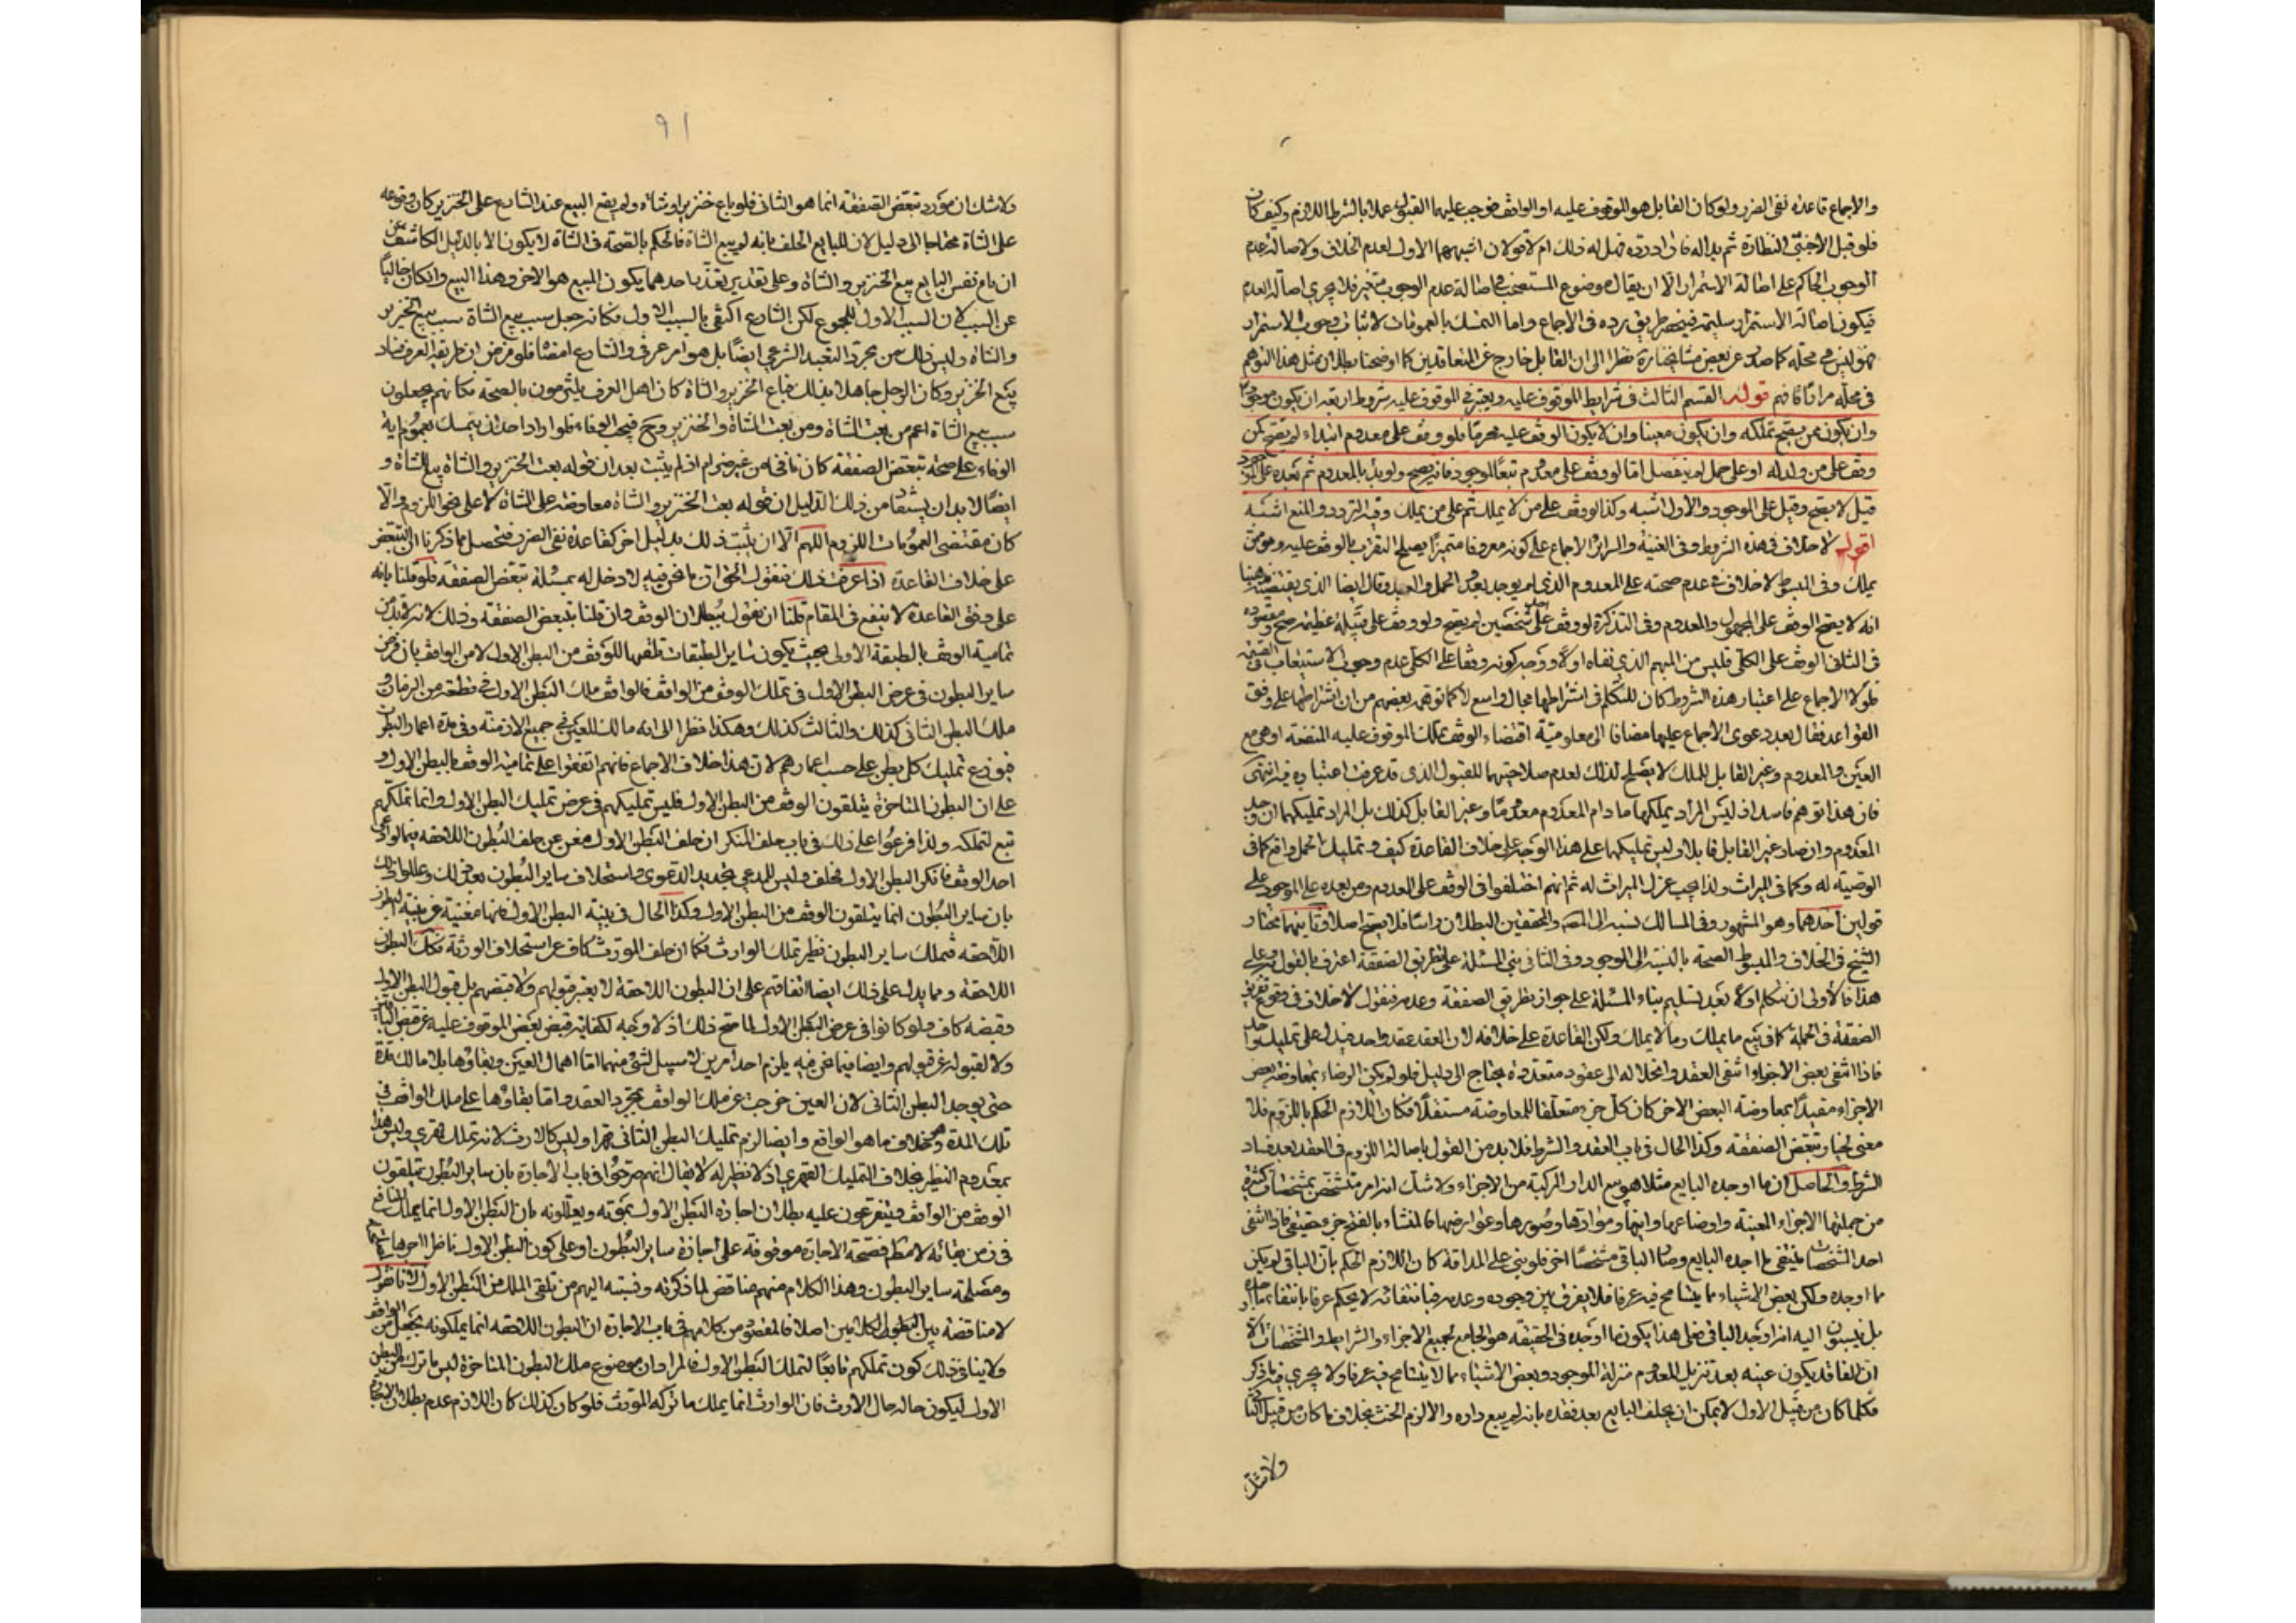 والاجماع قاعدة نفى الضرر ولو كان القابل هو الموقوف عليه او الواقف فوجب عليهما القبول عملا بالشرط اللازم وكيف كان
فلو قبل الاجنبى النظارة ثم بدا له فاراد رده فهل له ذلك ام لا قولان اشبههما الاول لعدم الخلاف ولاصالة عدم
الوجوب الحاكم على اصالة الاستمرار الا ان يقال موضوع المستصحب فى اصالة عدم الوجوب متغير فلا يجرى اصالة العدم
فيكون اصالة الاستمرار سليمة فينحصر طريق رده فى الاجماع واما التمسك بالعمومات لاثبات وجوب الاستمرار
فهو ليس فى محله كما صدر عن بعض مشايخنا ره نظرا الى ان القابل خارج عن المتعاقدين كما اوضحنا بطلان مثل هذا التوهم
فى محله مرارا فافهم قوله القسم الثالث فى شرايط الموقوف عليه ويعتبر فى الموقوف عليه شروط اربعة ان يكون موجودا
وان يكون ممن يصح تملكه وان يكون معينا وان لا يكون الوقف عليه محرما فلو وقف على معدوم ابتداء لم يصح كمن
وقف على من يولد له او على حمل لم ينفصل اما لو وقف على معدوم تبعا لموجود فانه يصح ولو بدء بالمعدوم ثم بعده على الموجود
قيل لا يصح وقيل على الموجود والاول اشبه وكذا لو وقف على من لا يملك ثم على من يملك وفيه التردد والمنع اشبه
اقول لا خلاف فى هذه الشروط وفى الغنية والسرائر الاجماع على كونه معروفا متميزا يصلح التقرب بالوقف عليه وهو ممن
يملك وفى المبسوط لا خلاف فى عدم صحته على المعدوم الذى لم يوجد بعد والحمل والعبد وقال ايضا الذى يقتضيه مذهبنا
انه لا يصح الوقف على المجهول والمعدوم وفى التذكرة لو وقف على احد شخصين لم يصح ولو وقف على قبيلة عظيمة صح ومقصوده
فى الثانى الوقف على الكلى فليس من المبهم الذى نفاه اولا ووجه كونه وقفا على الكلى عدم وجوب الاستيعاب فى القسمة
فلولا الاجماع على اعتبار هذه الشروط كان للتكلم فى اشتراطها مجال واسع لا كما توهمه بعضهم من ان اشتراطها على وفق
القواعد فقال بعد دعوى الاجماع عليها مضافا الى معلومية اقتضاء الوقف تملك الموقوف عليه المنفعة او هى مع
العين والمعدوم وغير القابل للملك لا يصلح لذلك لعدم صلاحيتهما للقبول الذى قد عرفت اعتباره فيه انتهى
فان هذا توهم فاسد اذ ليس المراد يملكها ما دام المعدوم معدوما وغير القابل كذلك بل المراد تمليكها ان وجد
المعدوم وان صار غير القابل قابلا وليس تمليكها على هذا الوجه على خلاف القاعدة كيف وتمليك الحمل واقع كما فى
الوصية له وكما فى الميراث ولذا يجب عزل الميراث له ثم انهم اختلفوا فى الوقف على المعدوم ومن بعده على الموجود على
قولين احدهما وهو المشهور وفى المسالك نسبه الى المصنف والمحققين البطلان راسا فلا يصح اصلا وثانيهما مختار
الشيخ فى الخلاف والمبسوط الصحة بالنسبة الى الموجود وفى الثانى بنى المسئلة على تفريق الصفقة اعترف بالقول به وعلى
هذا فالاولى ان نتكلم اولا بعد تسليم بناء المسئلة على جواز تفريق الصفقة وعدمه فنقول لا خلاف فى وقوع تفريق
الصفقة فى الجملة كما فى بيع ما يملك وما لا يملك ولكن القاعدة على خلافه لان العقد عقد واحد
فاذا انتفى بعض الاجزاء انتفى العقد وانحلاله الى عقود متعددة يحتاج الى دليل فلو لم يكن الرضاء بمعاوضة بعض
الاجزاء مقيدا بمعاوضة البعض الاخر كان كل جزء متعلقا للمعاوضة مستقلا فكان اللازم الحكم باللزوم فلا
معنى لخيار تبعض الصفقة وكذا الحال فى باب العقد والشرط فلا بد من القول باصالة اللزوم فى العقد بعد فساد
الشرط والحاصل ان ما اوجده البايع مثلا هو بيع الدار المركبة من الاجزاء ولا شك انه امر متشخص بمشخصات كثيرة
من جملتها الاجزاء المعينة واوضاعها وابنيها وموادها وصورها وعوارضها فالمنشاء بالفتح جزء حقيقى فاذا انتفى
احد المشخصات ينتفى ما اوجده البايع وصار الباقى متشخصا اخر فلو بنى على المداقة كان اللازم الحكم بان الباقى لم يكن
مما اوجده ولكن بعض الاشياء مما يتسامح فيه عرفا فلا يفرق بين وجوده وعدمه فبانتفائه لا يحكم عرفا بانتفاء ما اوجده
بل ينسبون اليه انه اوجد الباقى فعلى هذا يكون ما اوجده فى الحقيقة هو الجامع لجميع الاجزاء والشرايط والمشخصات الا
ان الفاقد يكون عينه بعد تنزيل المعدوم منزلة الموجود وبعض الاشياء مما لا يتسامح فيه عرفا ولا يجرى فيه ما ذكر
فكلما كان من قبيل الاول لا يمكن ان يحلف البايع بعد فقده بانه لم يبع داره والا لزم الحنث بخلاف ما كان من قبيل الثانى
ولا شك
٩١
ولا شك ان مورد تبعض الصفقة انما هو الثانى فلو باع خنزيرا وشاة ولم يقع البيع عند الشارع على الخنزير كان وقوعه
على الشاة محتاجا الى دليل لان للبايع الحلف بانه لم يبع الشاة فالحكم بالصحة فى الشاة لا يكون الا بالدليل الكاشف عن
ان نفس البايع بيع الخنزير والشاة وعلى تقدير تعذر احدهما يكون المبيع هو الاخر وهذا البيع وان كان خاليا
عن السبب لان السبب الاول للمجموع لكن الشارع اكتفى بالسبب الاول فكانه جعل سبب بيع الشاة سبب بيع الخنزير
والشاة وليس ذلك من مجرد التعبد الشرعى ايضا بل هو امر عرفى والشارع امضاه فلو فرض ان طريقة العرف فساد
بيع الخنزير وكان الرجل جاهلا بذلك فباع الخنزير والشاة كان اهل العرف يلتزمون بالصحة فكانهم يجعلون
سبب بيع الشاة اعم من بعت الشاة ومن بعت الشاة والخنزير وح فيجب الوفاء فلو اراد احد ان يتمسك بعموم اية
الوفاء على صحة تبعض الصفقة كان ناشئا من غير مرام اذ لم يثبت بعد ان قوله بعت الخنزير والشاة بيع للشاة و
ايضا لا بد ان يستفاد من ذلك الدليل ان قوله بعت الخنزير والشاة معاوضة على الشاة لا على نحو اللزوم والا
كان مقتضى العمومات اللزوم اللهم الا ان يثبت ذلك بدليل اخر كقاعدة نفى الضرر فتحصل مما ذكرنا ان التبعض
على خلاف القاعدة اذا عرفت ذلك فنقول الحق ان ما نحن فيه لا دخل له بمسئلة تبعض الصفقة فلو قلنا بانه
على وفق القاعدة لا ينفع فى المقام قلنا ان نقول ببطلان الوقف وان قلنا بتبعض الصفقة وذلك لانه لا بد من
تمامية الوقف بالطبقة الاولى بحيث يكون ساير الطبقات تلقيها للوقف من البطن الاول لا من الواقف بان فرض
ساير البطون فى عرض البطن الاول فى تملك الوقف من الواقف فالواقف ملك البطن الاول فى قطعة من الزمان و
ملك البطن الثانى كذلك والثالث كذلك وهكذا نظرا الى انه مالك للعين فى جميع الازمنة وفى مدة اعمار البطون
فيوزع تمليك كل بطن على حسب اعمارهم لان هذا خلاف الاجماع فانهم اتفقوا على تمامية الوقف بالبطن الاول و
على ان البطون المتاخرة يتلقون الوقف من البطن الاول فليس تمليكهم فى عرض تمليك البطن الاول وانما تملكهم
تبع لتملكه ولذا فرعوا على ذلك فى باب حلف المنكر ان حلف البطن الاول مغن عن حلف البطون اللاحقة فيما لو ادعى
احد الوقف فانكر البطن الاول فحلف وليس للمدعى تجديد الدعوى واستحلاف ساير البطون بعد ذلك وعللوا ذلك
بان ساير البطون انما يتلقون الوقف من البطن الاول وكذا الحال فى بينة البطن الاول فانها مغنية عن بينة البطون
اللاحقة فتملك ساير البطون نظير تملك الوارث فكما ان حلف المورث كاف عن استحلاف الورثة فكذلك البطون
اللاحقة ومما يدل على ذلك ايضا اتفاقهم على ان البطون اللاحقة لا يعتبر قبولهم ولا قبضهم بل قبول البطن الاول
وقبضه كاف فلو كانوا فى عرض البطن الاول لما صح ذلك اذ لا وجه لكفاية قبض بعض الموقوف عليه عن قبض الباقى
ولا لقبوله عن قبولهم وايضا فيما نحن فيه يلزم احد امرين لا سبيل لشئ منهما اما اهمال العين وبقاؤها بلا مالك مدة
حتى يوجد البطن الثانى لان العين خرجت عن ملك الواقف بمجرد العقد واما بقاؤها على ملك الواقف فى
تلك المدة وهو خلاف ما هو الواقع وايضا لزم تمليك البطن الثانى قهرا وليس كالارث لانه تملك قهرى وليس هذا
بمعدوم النظير بخلاف التمليك القهرى اذ لا نظير له لا يقال انهم صرحوا فى باب الاجارة بان ساير البطون يتلقون
الوقف من الواقف فيتفرعون عليه بطلان اجازة البطن الاول بموته ويعللونه بان البطن الاول انما يملك المنافع
فى زمن بقائه لا مطلقا فصحة الاجارة موقوفة على اجازة ساير البطون او على كون البطن الاول ناظرا
ومصلحة ساير البطون وهذا الكلام منهم مناقض لما ذكرته ونسبته اليهم من تلقى الملك من البطن الاول لانا نقول
لا مناقضة بين الكلامين اصلا فالمقصود من كلامهم فى باب الاجارة ان البطون اللاحقة انما يملكونه بجعل من الواقف
ولا ينافى ذلك كون تملكهم تابعا لتملك البطن الاول فالمراد ان موضوع ملك البطون المتاخرة ليس ما تركه البطن
الاول ليكون حاله حال الارث فان الوارث انما يملك ما تركه المورث فلو كان كذلك كان اللازم عدم بطلان الاجارة